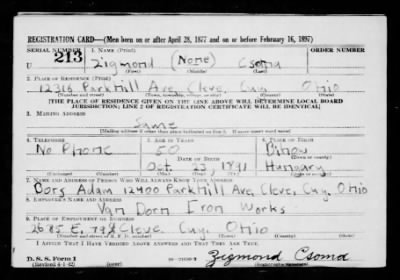 REGISTRATION CARD—(Men born on or after April 28, 1877 and on or before February 16, 1897)
SERIAL NUMBER 1. NAME (Print) ORDER NUMBER
U 213 Zigmond (None) Csoma
(First) (Middle) (Last)
2. PLACE OF RESIDENCE (Print)
12316 Parkhill Ave, Cleve. Cuy. Ohio
(Number and street) (Town, township, village, or city) (County) (State)
[THE PLACE OF RESIDENCE GIVEN ON THE LINE ABOVE WILL DETERMINE LOCAL BOARD
JURISDICTION; LINE 2 OF REGISTRATION CERTIFICATE WILL BE IDENTICAL]
3. MAILING ADDRESS
Same
(Mailing address if other than place indicated on line 2. If same insert word same)
4. TELEPHONE 5. AGE IN YEARS 6. PLACE OF BIRTH
No Phone 50 Bihor
DATE OF BIRTH (Town or county)
Oct. 23, 1891 Hungary
(Exchange) (Number) (Mo.) (Day) (Yr.) (State or country)
7. NAME AND ADDRESS OF PERSON WHO WILL ALWAYS KNOW YOUR ADDRESS
Bors Adam 12400 Parkhill Ave, Cleve, Cuy, Ohio
8. EMPLOYER'S NAME AND ADDRESS
Van Dorn Iron Works
9. PLACE OF EMPLOYMENT OR BUSINESS
2685 E. 79 Cleve. Cuy. Ohio
(Number and street or R. F. D. number) (Town) (County) (State)
I AFFIRM THAT I HAVE VERIFIED ABOVE ANSWERS AND THAT THEY ARE TRUE.
D. S. S. Form 1
(Revised 4-1-42) (over) Zigmond Csoma
(Registrant's signature)